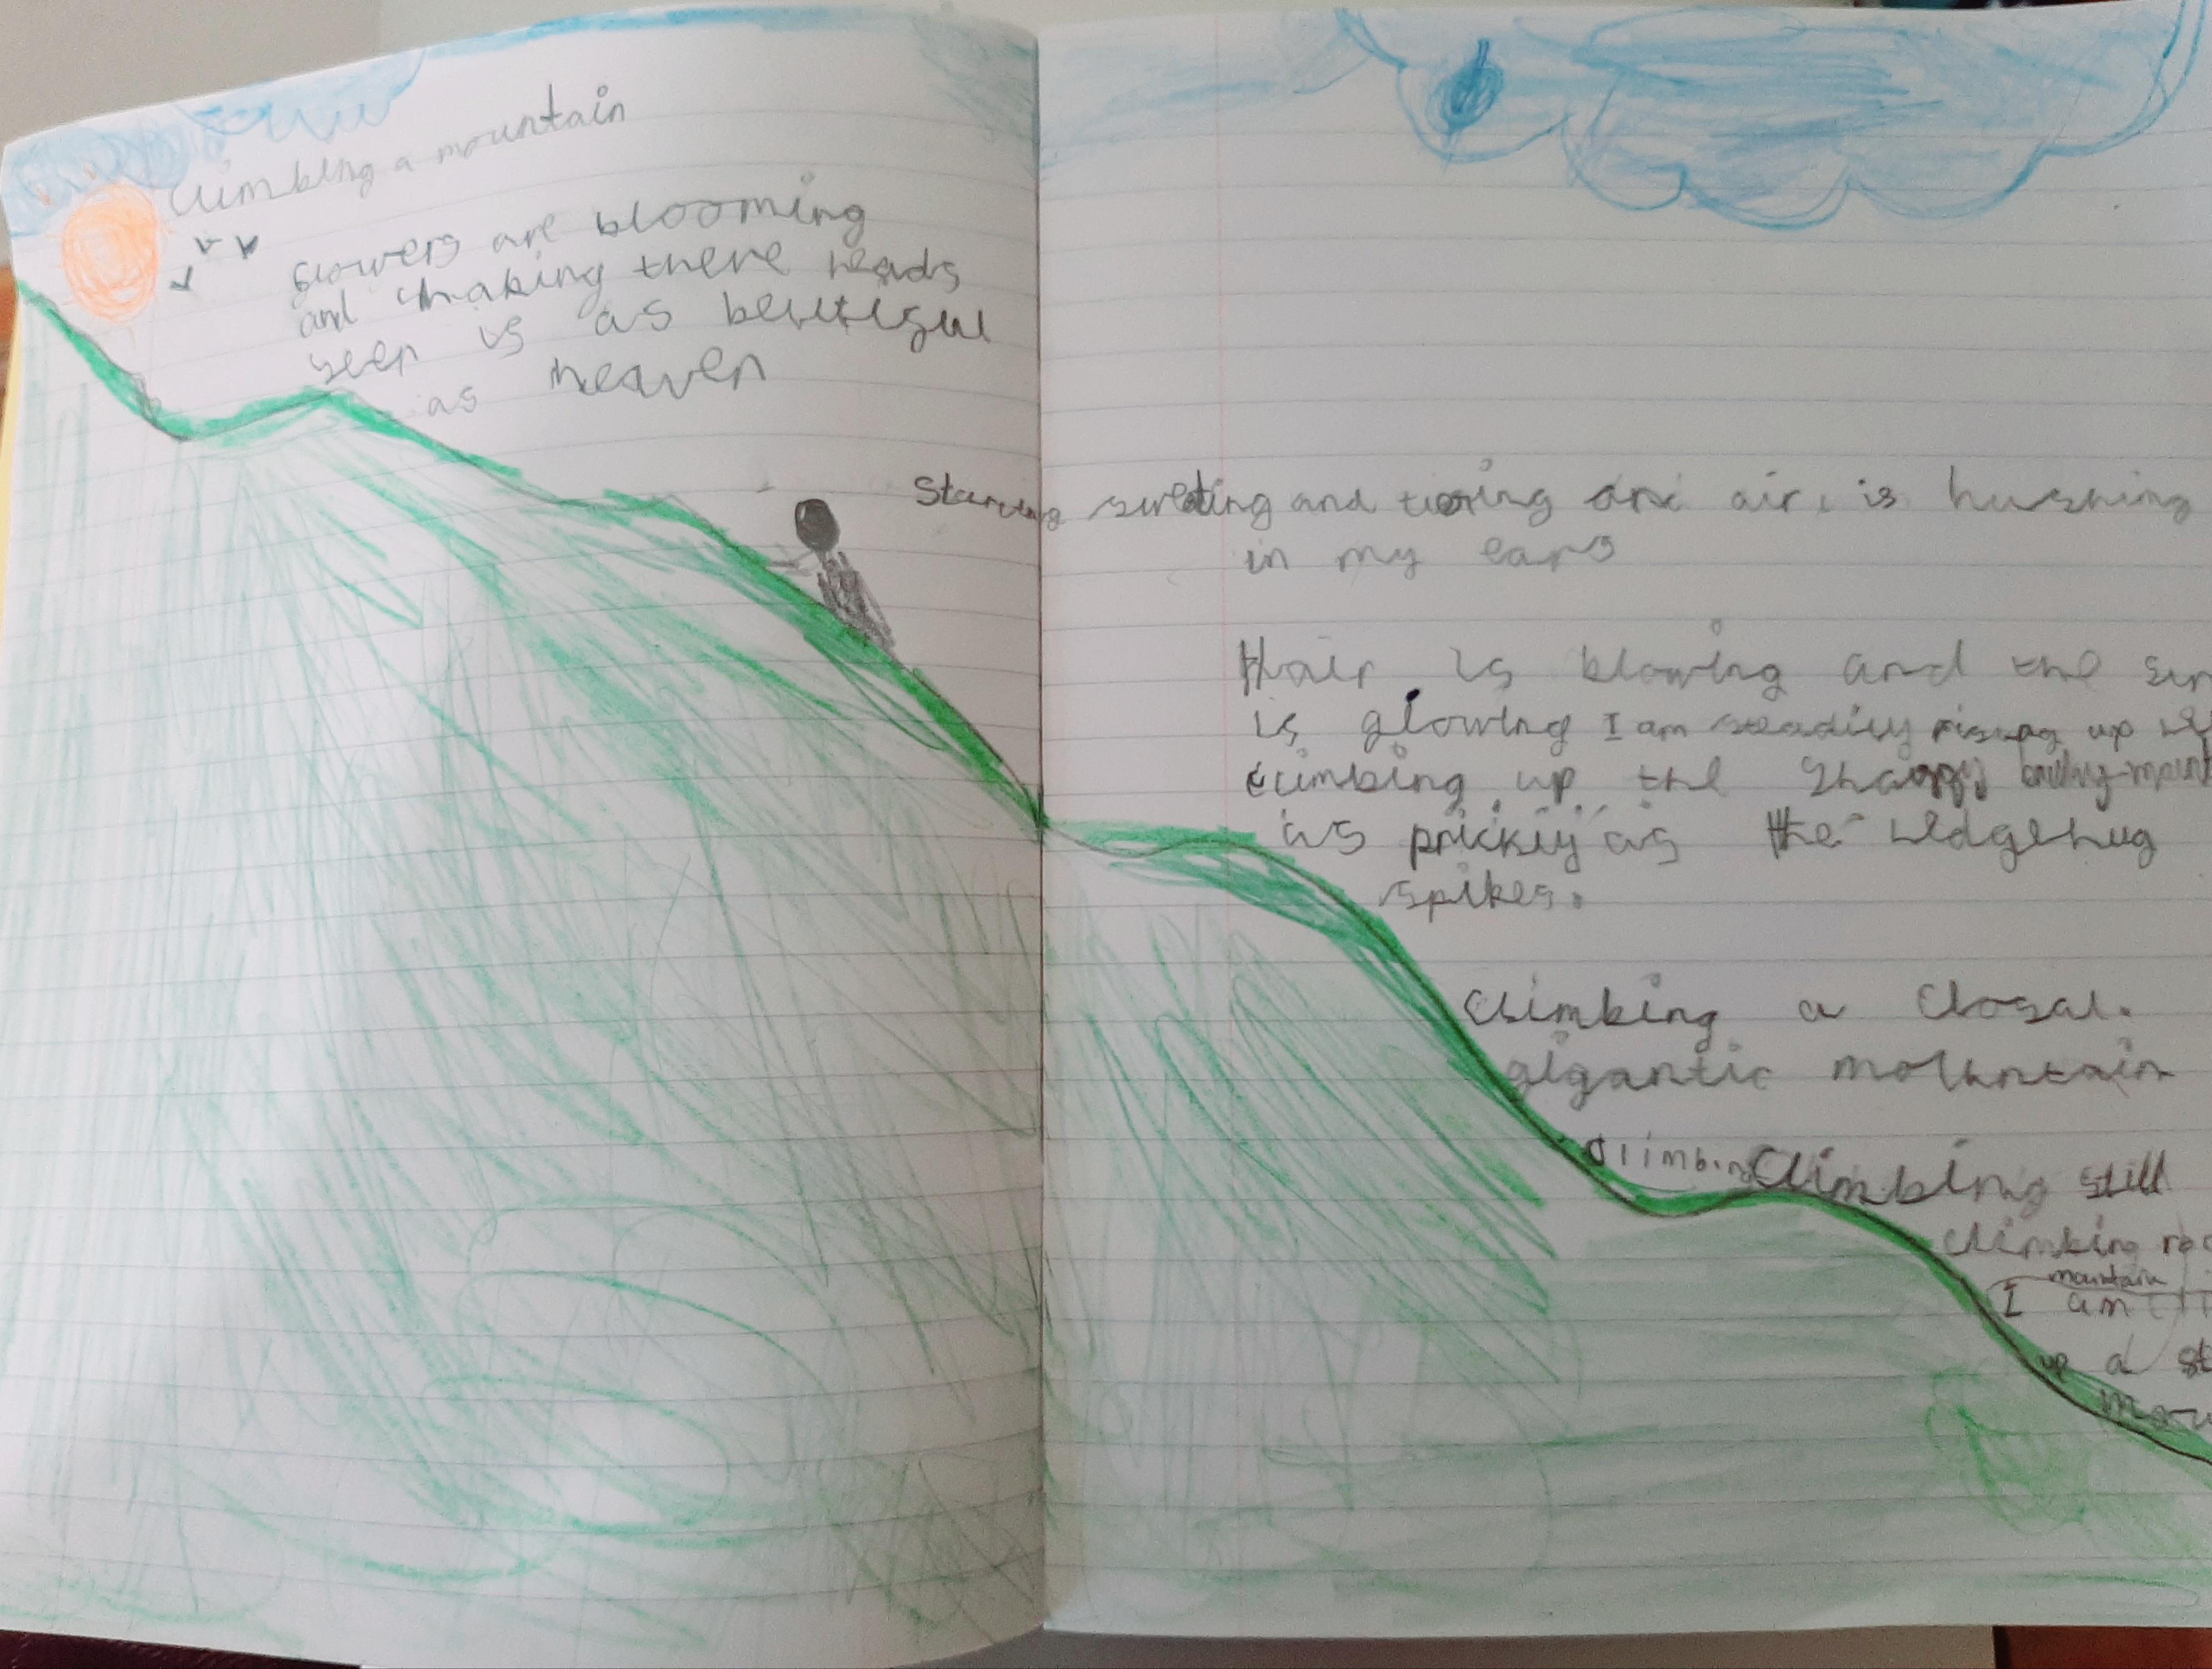 Climbing a mountain
flowers are blooming
and shaking there heads
seen is as beutiful
as heaven
Starving sweating and and air is hushing
in my ears
Hair is blowing and the
is glowing I am steadily rising up
climbing up the
as prickly as the hedgehug
spikes.
Climbing a closal.
gigantic mountain
Climbing Climbing still
climbing
mountain
I am
up a